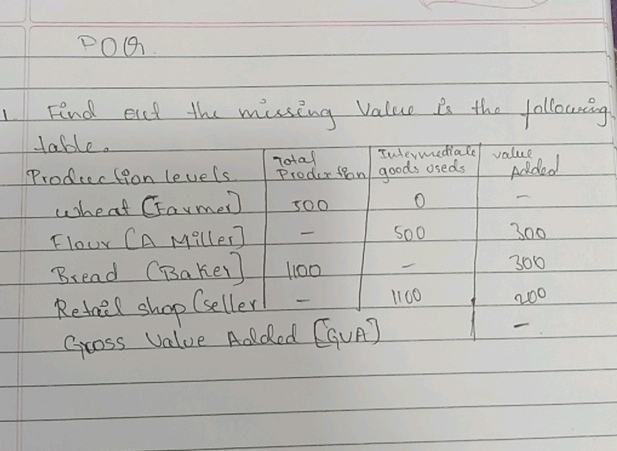 POQ.
1 Find out the missing Value is the following
table.
Production levels | Total Production | Intermediate goods useds | value Added
wheat [Farmer] | 500 | 0 | -
Flour [A Miller] | - | 500 | 300
Bread (Baker] | 1100 | - | 300
Retail shop (seller | - | 1100 | 200
Gross Value Added [GVA] | -